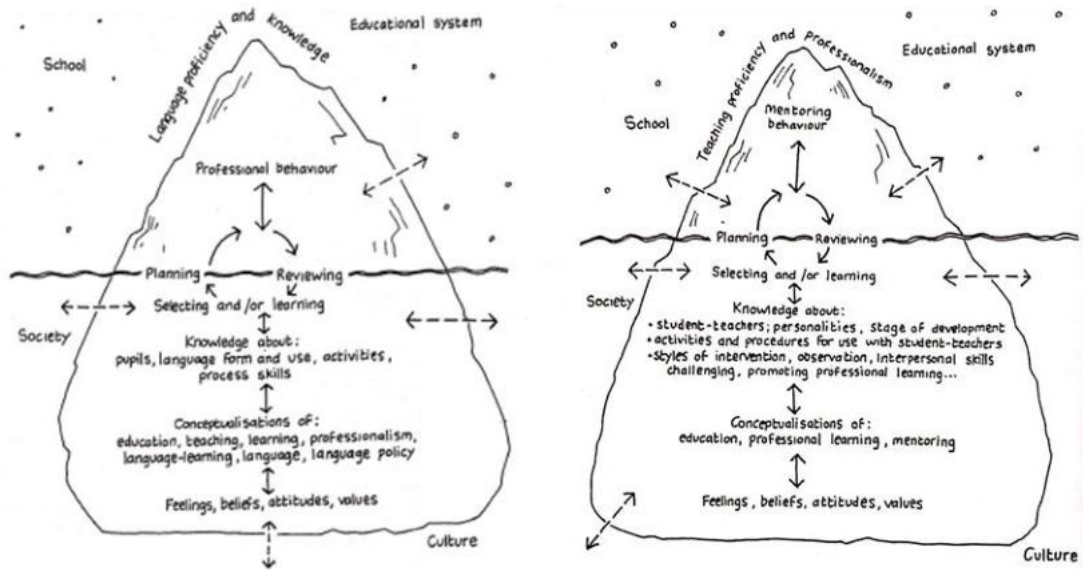 Language proficiency and knowledge
Educational system
School
Professional behaviour
Planning
Reviewing
Selecting and/or learning
Society
Knowledge about:
pupils, language form and use, activities,
process skills
Conceptualisations of:
education, teaching, learning, professionalism,
language-learning, language, language policy
Feelings, beliefs, attitudes, values
Culture
Teaching proficiency and professionalism
Educational system
School
Mentoring
behaviour
Planning
Reviewing
Selecting and/or learning
Society
Knowledge about:
• student-teachers; personalities, stage of development
• activities and procedures for use with student-teachers
• styles of intervention, observation, interpersonal skills
challenging, promoting professional learning...
Conceptualisations of:
education, professional learning, mentoring
Feelings, beliefs, attitudes, values
Culture